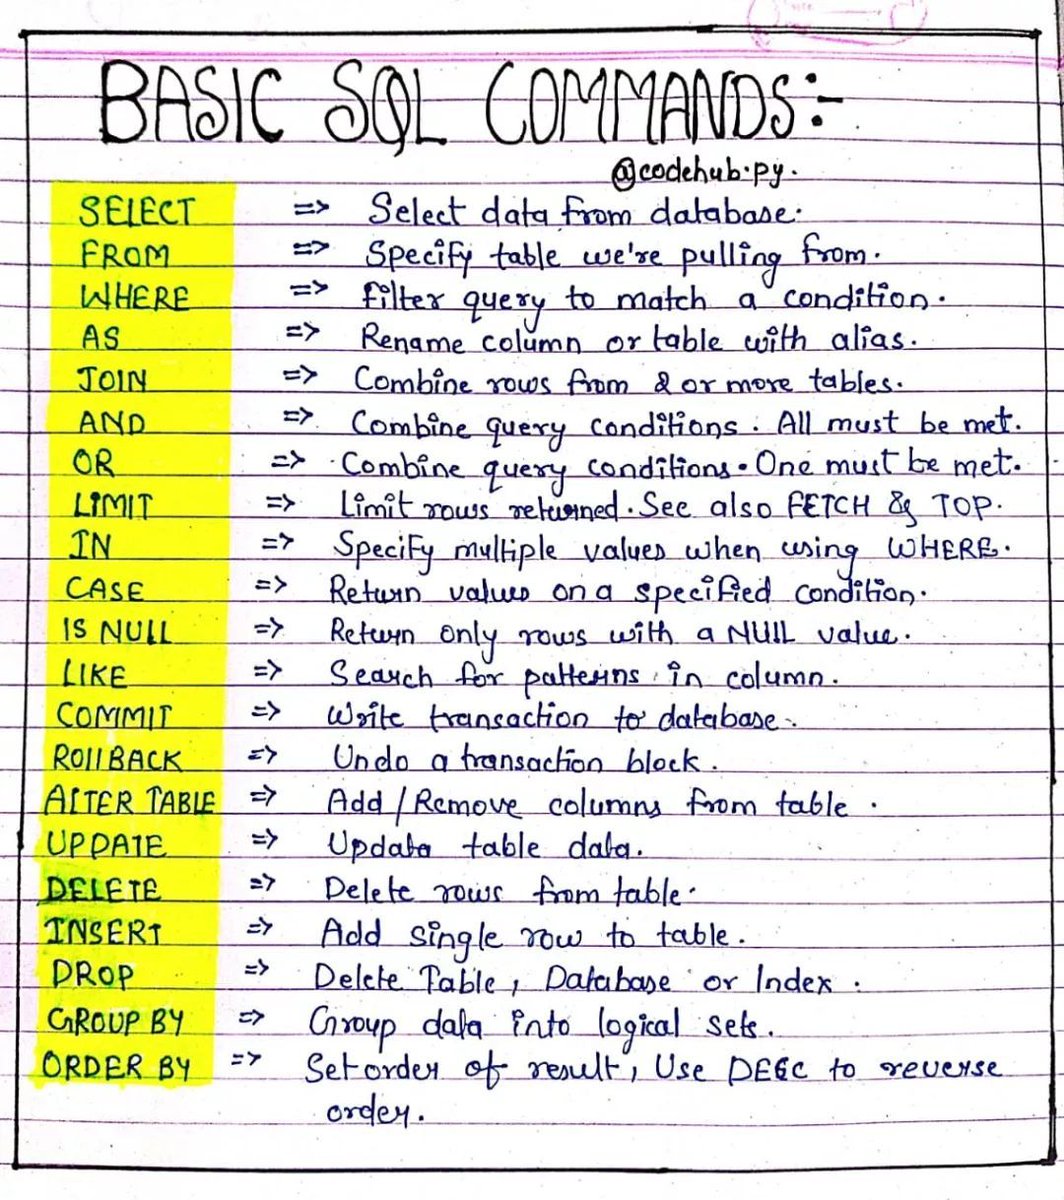 BASIC SQL COMMANDS:-
@codehub.py.
SELECT => Select data from database.
FROM => Specify table we're pulling from.
WHERE => Filter query to match a condition.
AS => Rename column or table with alias.
JOIN => Combine rows from 2 or more tables.
AND => Combine query conditions. All must be met.
OR => Combine query conditions. One must be met.
LIMIT => Limit rows returned. See also FETCH & TOP.
IN => Specify multiple values when using WHERE.
CASE => Return values on a specified condition.
IS NULL => Return only rows with a NULL value.
LIKE => Search for patterns in column.
COMMIT => Write transaction to database.
ROLLBACK => Undo a transaction block.
ALTER TABLE => Add/Remove columns from table.
UPDATE => Update table data.
DELETE => Delete rows from table.
INSERT => Add single row to table.
DROP => Delete Table, Database or Index.
GROUP BY => Group data into logical sets.
ORDER BY => Set order of result, Use DESC to reverse
order.